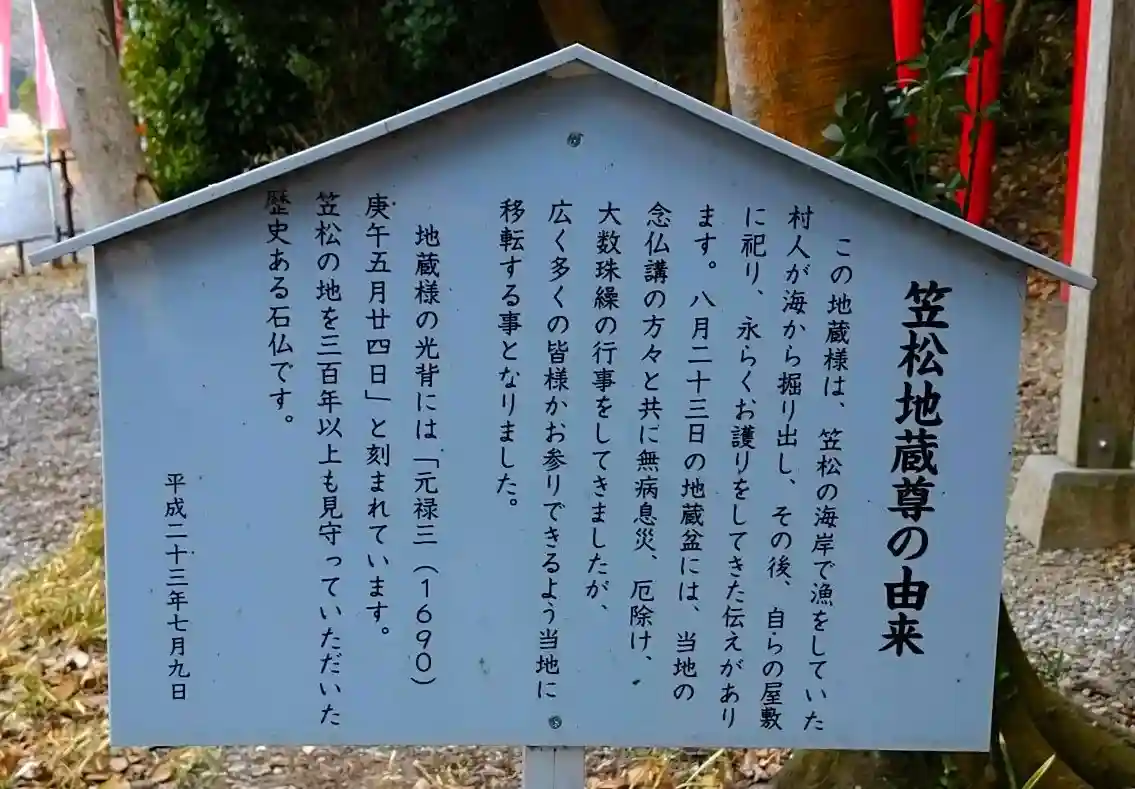 笠松地蔵尊の由来
この地蔵様は、笠松の海岸で漁をしていた
村人が海から掘り出し、その後、自らの屋敷
に祀り、永らくお護りをしてきた伝えがあり
ます。八月二十三日の地蔵盆には、当地の
念仏講の方々と共に無病息災、厄除け、
大数珠繰の行事をしてきましたが、
広く多くの皆様かお参りできるよう当地に
移転する事となりました。
地蔵様の光背には「元禄三(1690)
庚午五月廿四日」と刻まれています。
笠松の地を三百年以上も見守っていただいた
歴史ある石仏です。
平成二十三年七月九日